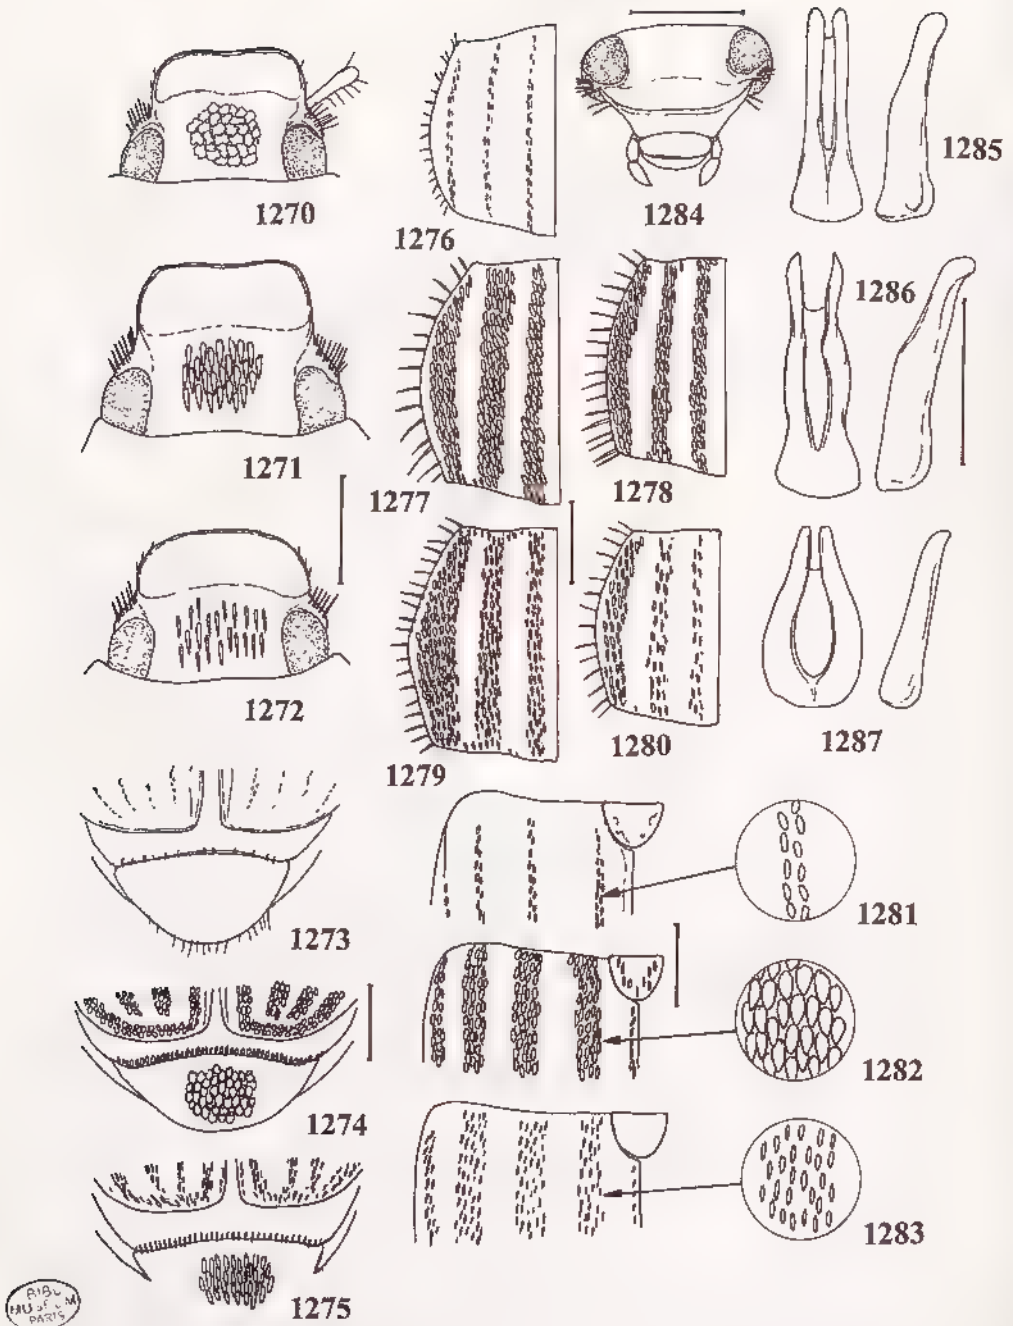 1270
1276
1284
1285
1271
1277
1278
1286
1272
1279
1280
1287
1273
1281
1274
1282
1275
1283
MUSEUM
PARIS